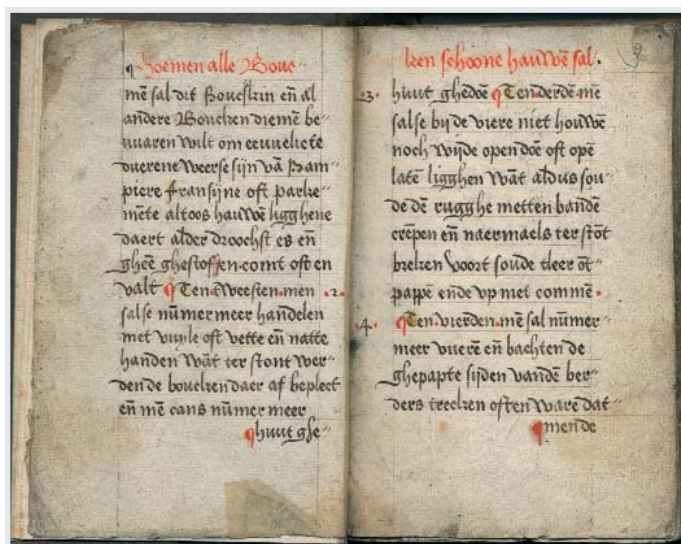 ¶ hoemen alle Bouc-
mē sal dit Boucskin eñ al
andere Boucken diemē be-
uuaren wilt om eeuuelicte
duerene weerse sijn vā Pam-
piere fransijne oft parke-
mēte altoos hauwē ligghene
daert alder droochst es eñ
gheē ghestof en comt oft en
valt ¶ Ten tweesten men .2.
salse nūmermeer handelen
met vuyle oft vette eñ natte
handen wāt ter stont wer-
den de boucken daer af beplect
eñ mē cans nūmer meer
¶ huut ghe-
ken schoone hauwē sal.
.3. huut ghedoē ¶ Ten derdē mē
salse bij de viere niet houwē
noch wijde open doē oft opē
latē ligghen wāt aldus sou-
de dē rugghe metten bandē
crēpen eñ naermaels ter stōt
breken voort soude tleer ōt-
pappē ende vp niet commē.
.4. ¶ Ten vierden mē sal nūmer
meer vuerē eñ bachten de
ghepapte sijden vandē ber-
ders trecken often ware dat-
¶ men de